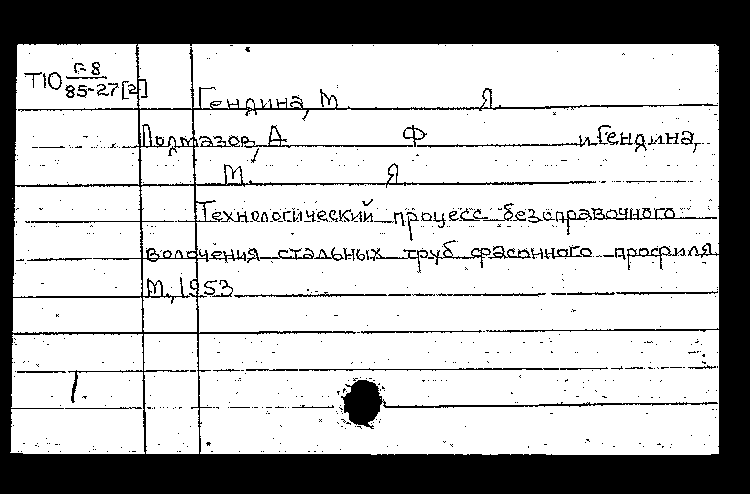 Т10 г-8
85-27[2]
Гендина, М Я.
Полтазов, А Ф и Гендина,
М. Я
Технологический процесс безоправочного
волочения стальных труб фасонного профиля.
М., 1953
1.